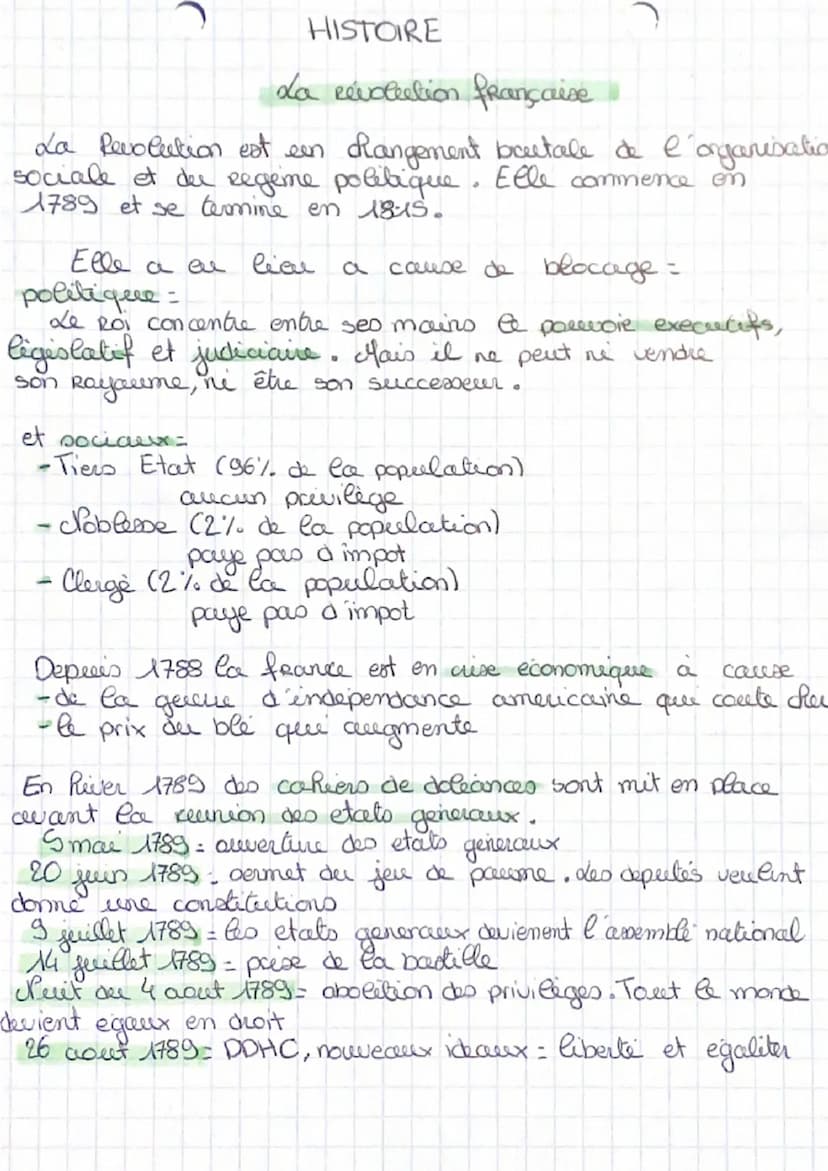 HISTOIRE
La révolution française
La Revolution est un changement brutale de l'organisatio
sociale et du regeme politique. Elle commence en
1789 et se termine en 1815.
Elle a eu lieu a cause de blocage =
politique =
Le Roi concentre entre ses mains le pouvoir executifs,
législatif et judiciaire. Mais il ne peut ni vendre
son Rayaume, ni être son successeur.
et sociaux =
- Tiers Etat (96% de la population)
aucun privilège
- Noblesse (2% de la population)
paye pas d'impot
- Clergé (2% de la population)
paye pas d'impot
Depuis 1788 la france est en crise économique à cause
- de la guerre d'independance americaine qui coute cher
- le prix du blé qui augmente
En hiver 1789 des cahiers de doléances sont mit en place
avant la reunion des etats generaux.
5 mai 1789 = ouverture des etats generaux
20 juin 1789 = serment du jeu de paume. des députés veulent
donné une constitutions
9 juillet 1789 = les etats generaux devienent l'assemblé national
14 juillet 1789 = prise de la bastille
Nuit du 4 aout 1789 = abolition des privilèges. Tout le monde
devient egaux en droit
26 aout 1789 = DDHC, nouveaux ideaux = liberté et egaliter